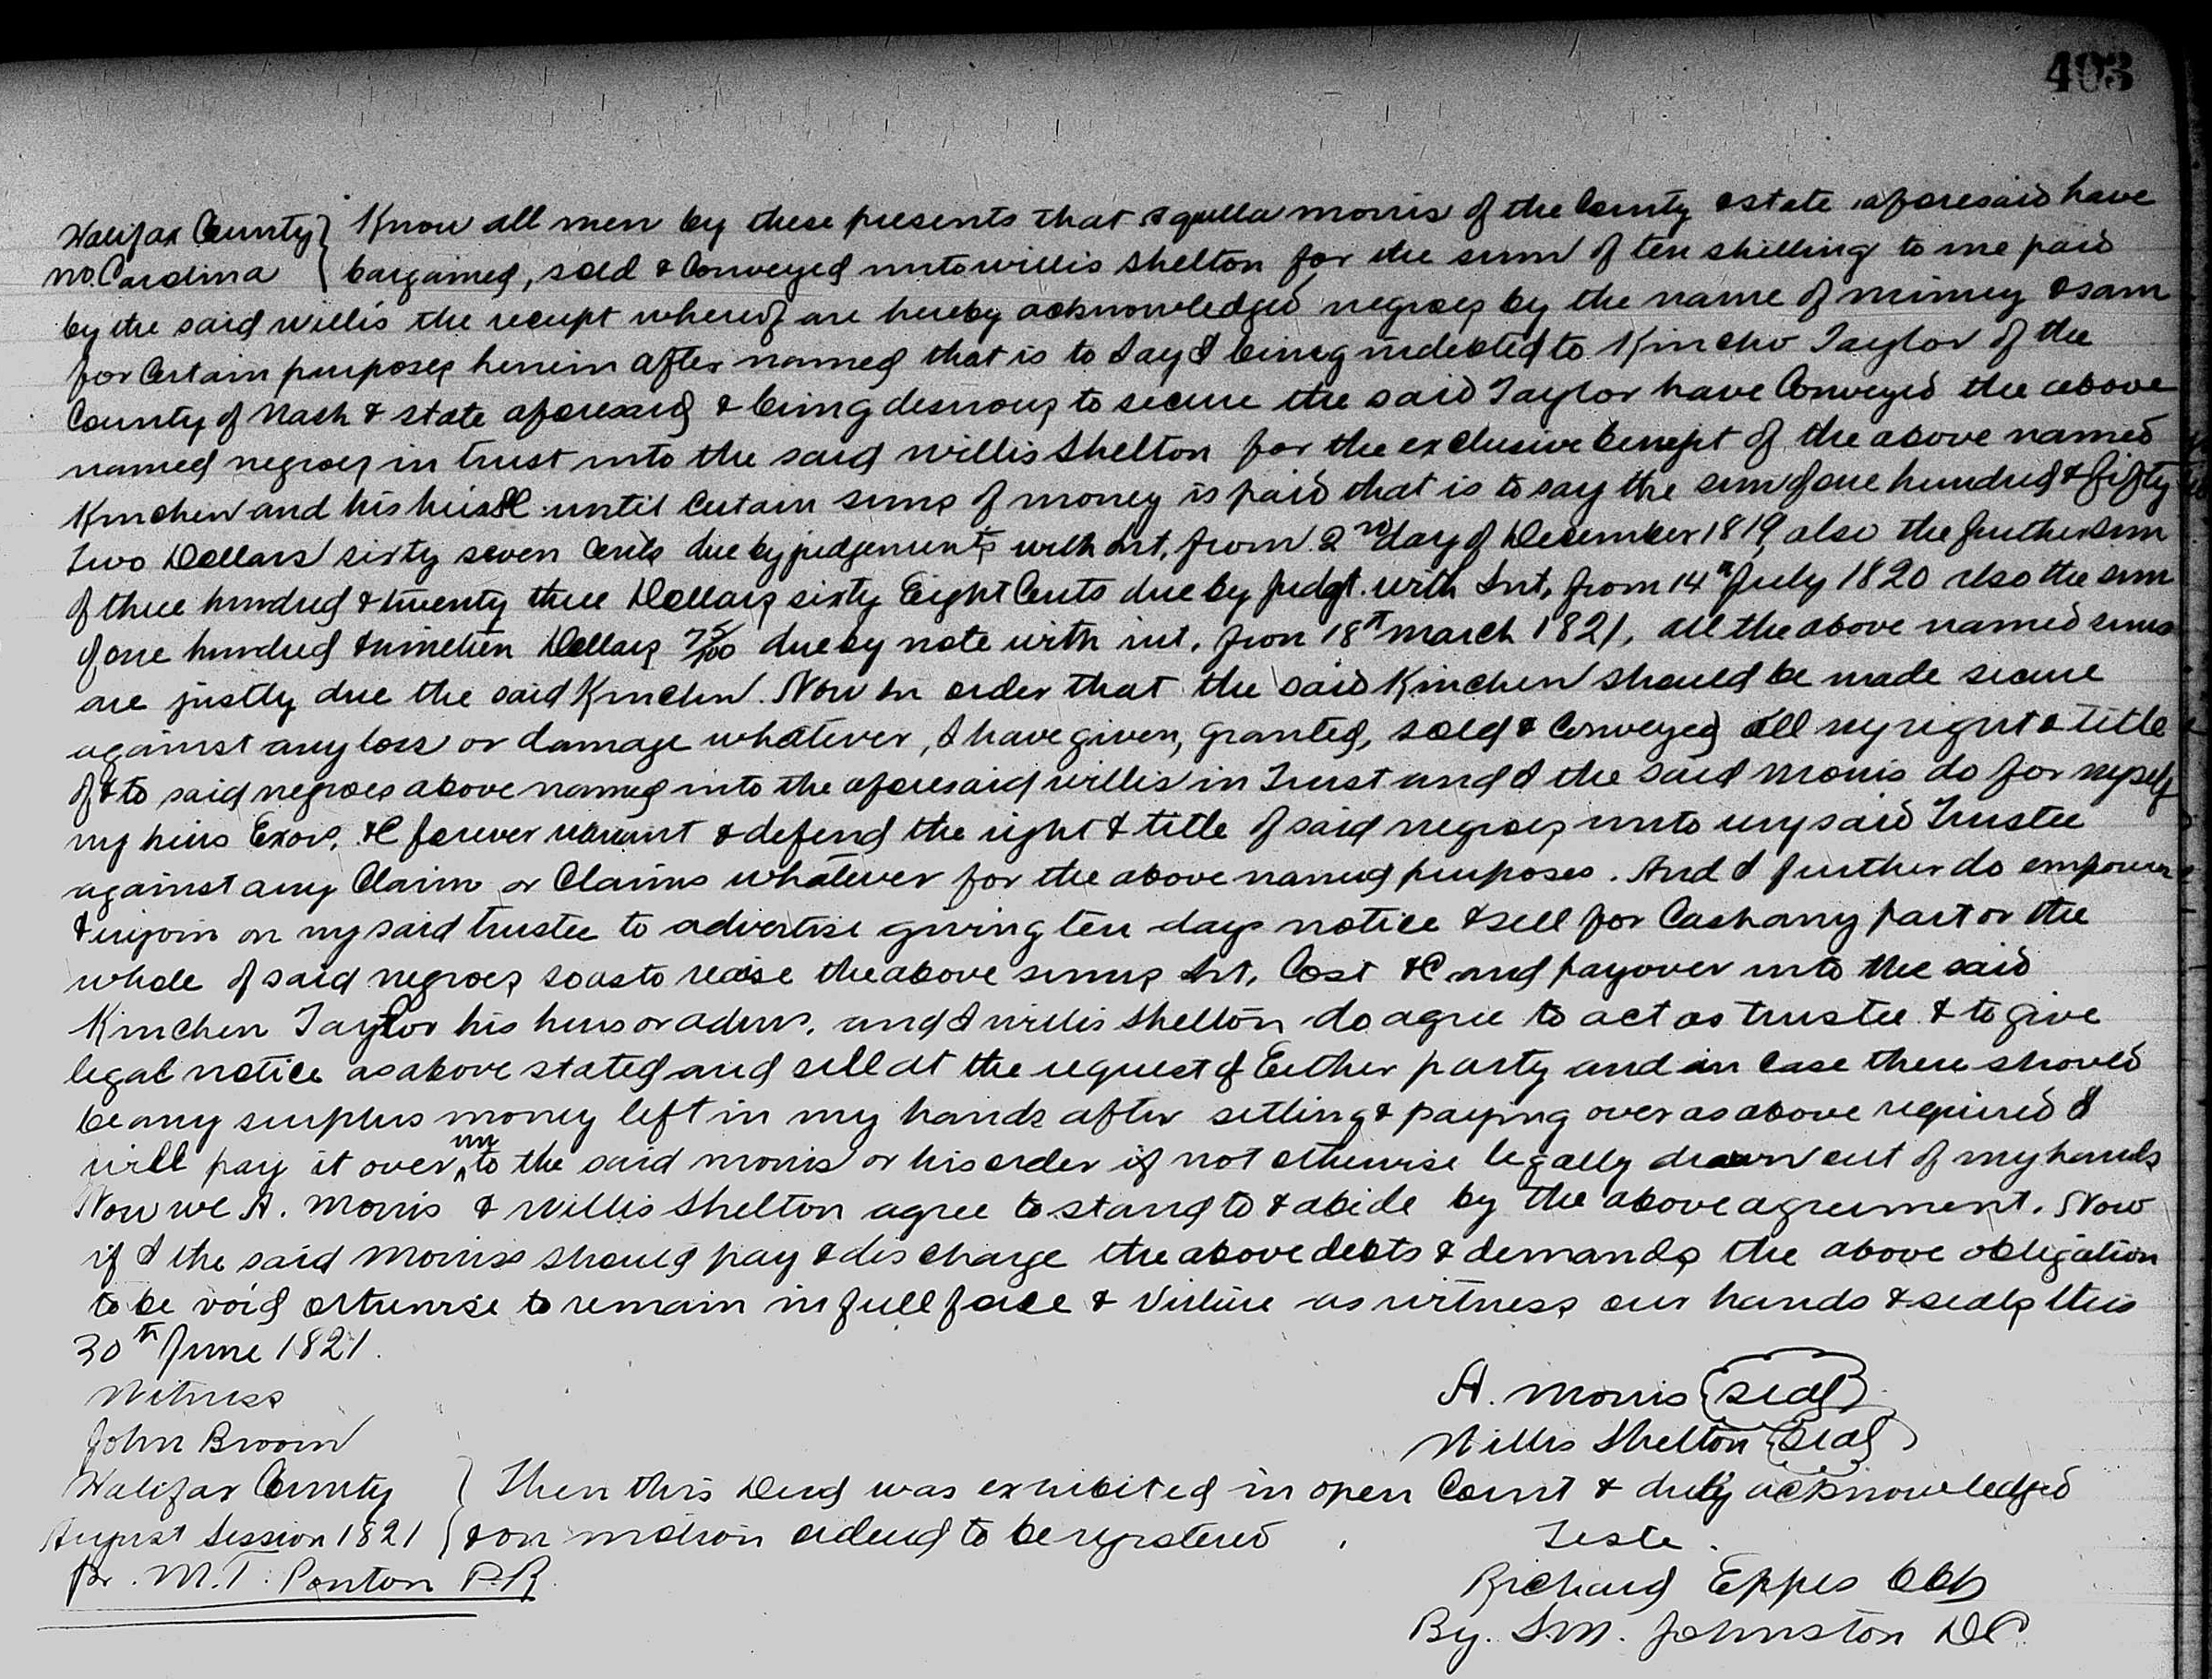 493
Halifax County } Know all men by these presents that I quilla morris of the County & state aforesaid have
No. Carolina { bargained, sold & Conveyed unto willis Shelton for the sum of ten shilling to me paid
by the said willis the receipt whereof are hereby acknowledged negroes by the name of mimey & sam
for Certain purposes herein after named that is to say I being indebted to Kinchn Taylor of the
County of Nash & state aforesaid & being desirous to secure the said Taylor have Conveyed the above
named negroes in trust unto the said willis Shelton for the exclusive benefit of the above named
Kinchen and his heirs &C until Certain sums of money is paid that is to say the sum of one hundred & fifty
two Dollars sixty seven Cents due by judgements with Int, from 2nd day of December 1819, also the further sum
of three hundred & twenty three Dollars sixty Eight Cents due by Judgt. with Int, from 14th July 1820 also the sum
of one hundred & nineteen Dollars 75/100 due by note with int. from 18th March 1821, all the above named sums
are justly due the said Kinchen. Now in order that the said Kinchen should be made secure
against any loss or damage whatever, I have given, granted, sold & Conveyed all my right & title
of & to said negroes above named unto the aforesaid willis in Trust and I the said Morris do for myself
my heirs Exors, &C forever warrant & defend the right & title of said negroes unto my said Trustee
against any Claim or Claims whatever for the above named purposes. And I further do empower
& enjoin on my said trustee to advertise giving ten days notice & sell for Cash any part or the
whole of said negroes so as to raise the above sums Int, Cost &C and pay over unto the said
Kinchen Taylor his heirs or adms. and I willis Shelton do agree to act as trustee & to give
legal notice as above stated and sell at the request of Either party and in case there should
be any surplus money left in my hands after setling & paying over as above required I
will pay it over unto the said morris or his order if not otherwise legally drawn out of my hands
Now we A. Morris & Willis Shelton agree to stand to & abide by the above agreement. Now
if I the said Morris should pay & discharge the above debts & demands the above obligation
to be void otherwise to remain in full force & Virtue as witness our hands & seals this
30th June 1821.
Witness
A. Morris (seal)
John Broom
Willis Shelton (seal)
Halifax County } Then this Deed was exhibited in open Court & duly acknowledged
August Session 1821 { & on motion ordered to be registered
Teste.
Pr. M.T. Ponton P.R.
Richard Eppes CCk
By. S.M. Johnston DC.